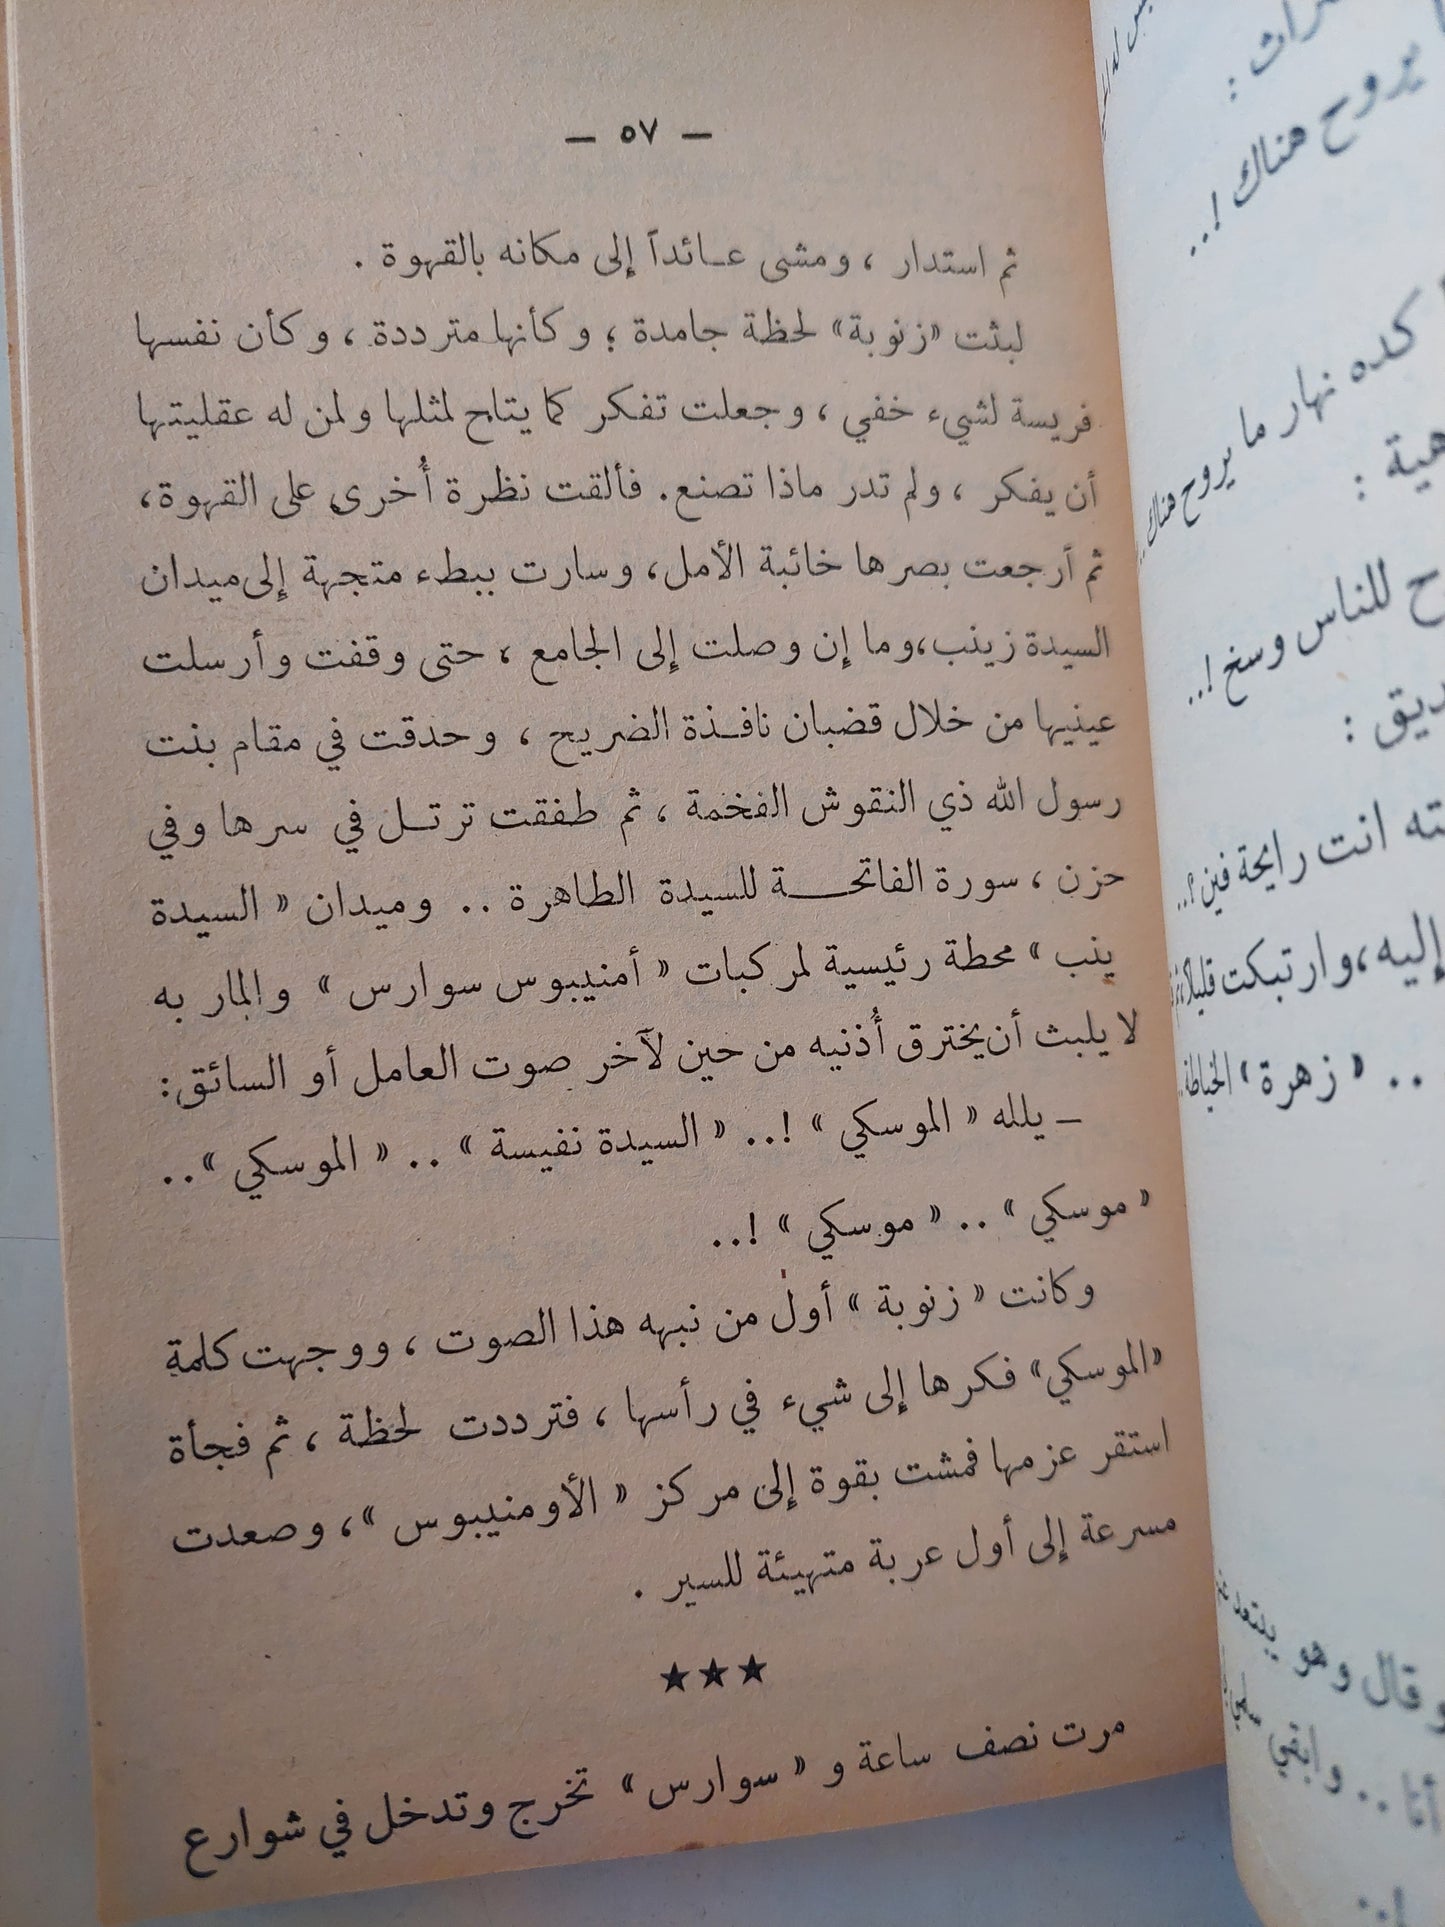 — ٥٧ —
ثم استدار ، ومشى عـائداً إلى مكانه بالقهوة .
لبثت «زنوبة» لحظة جامدة ؛ وكأنها مترددة ، وكأن نفسها
فريسة لشيء خفي ، وجعلت تفكر كما يتاح لمثلها ولمن له عقليتها
أن يفكر ، ولم تدر ماذا تصنع. فألقت نظرة أُخرى على القهوة،
ثم أرجعت بصرها خائبة الأمل، وسارت ببطء متجهة إلى ميدان
السيدة زينب،وما إن وصلت إلى الجامع ، حتى وقفت وأرسلت
عينيها من خلال قضبان نافـذة الضريح ، وحدقت في مقام بنت
رسول الله ذي النقوش الفخمة ، ثم طفقت ترتـل في سرها وفي
حزن ، سورة الفاتحـــة للسيدة الطاهرة .. وميدان « السيدة
ينب » محطة رئيسية لمركبات « أمنيبوس سوارس » والمار به
لا يلبث أن يخترق أُذنيه من حين لآخر صوت العامل أو السائق:
– يلله « الموسكي » !.. « السيدة نفيسة » .. « الموسكي »..
« موسكي » .. « موسكي » !..
وكانت « زنوبة » أول من نبهه هذا الصوت ، ووجهت كلمة
«الموسكي» فكرها إلى شيء في رأسها ، فترددت لحظة ، ثم فجأة
استقر عزمها فمشت بقوة إلى مركز « الأومنيبوس »، وصعدت
مسرعة إلى أول عربة متهيئة للسير .
★★★
مرت نصف ساعة و « سوارس » تخرج وتدخل في شوارع
يروح هناك !..
كده نهار ما يروح هناك..
للناس وسخ !..
انت رايحة فين ؟..
إليه،وارتبكت قليلا
.. « زهرة » الخياطة
وقال وهو يبتعد